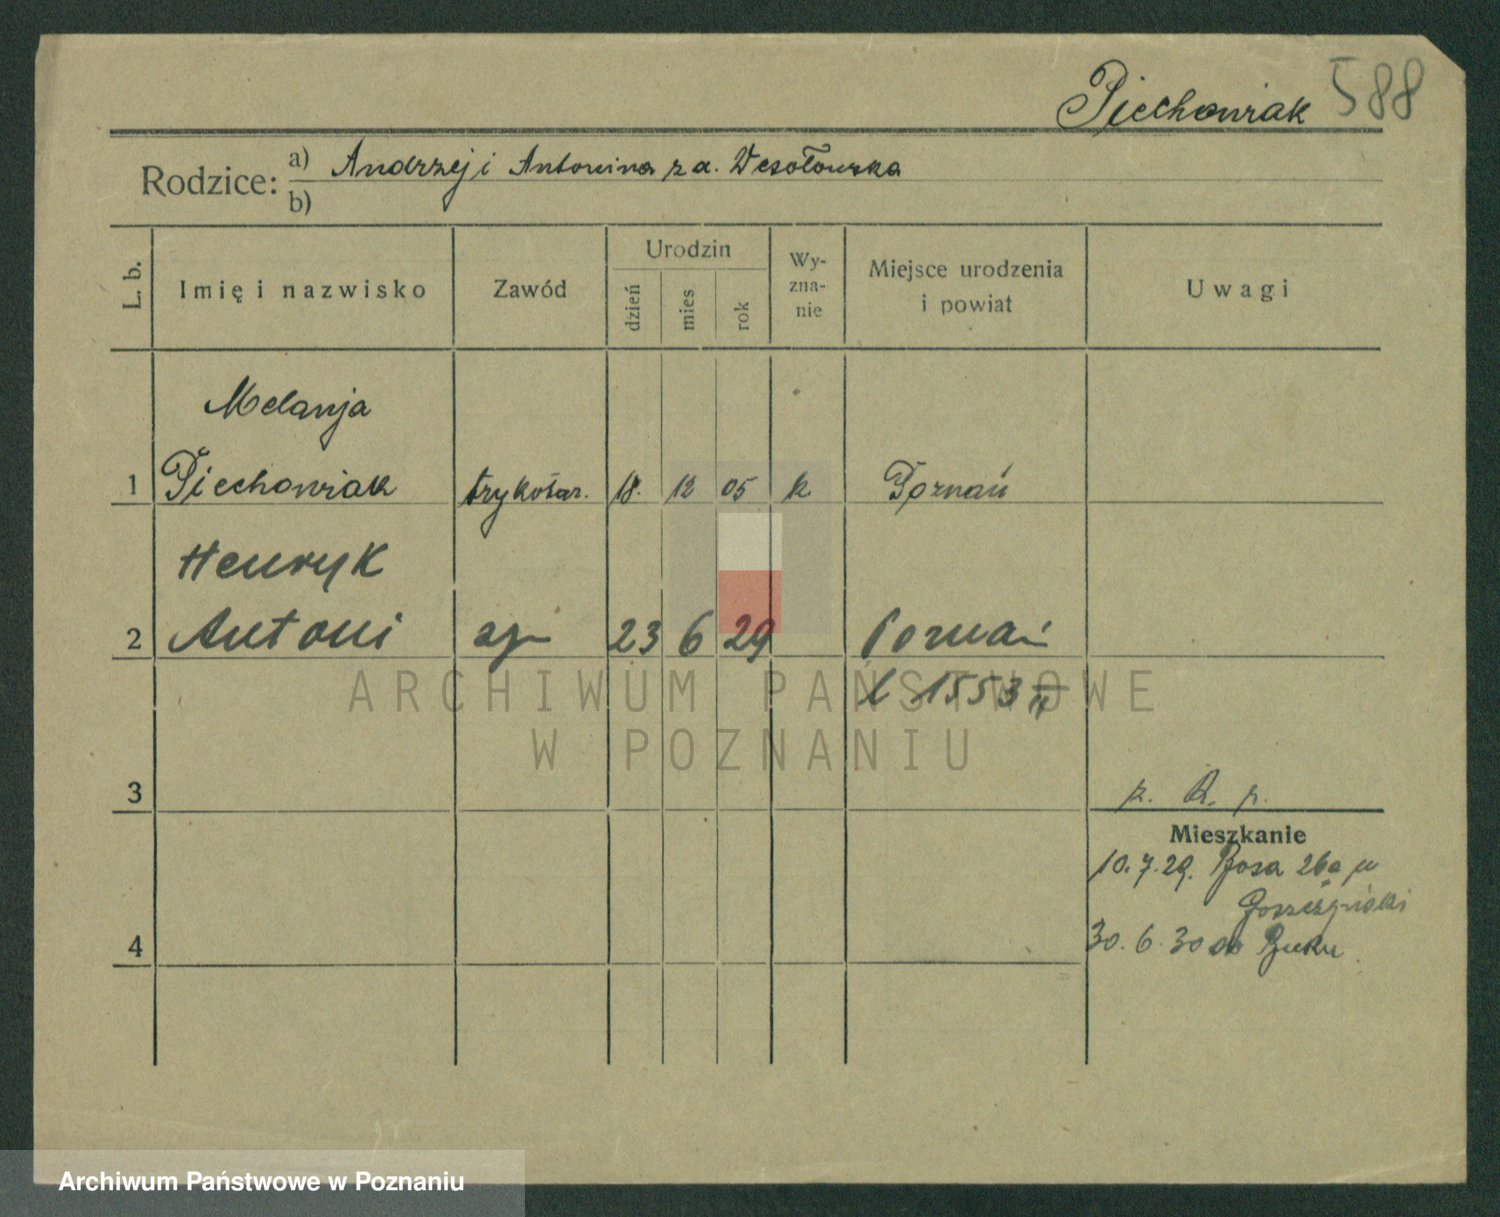 Piechowiak 588
Rodzice: a) Andrzej i Antonina z d. Wesołowska
b)
L. b.
Imię i nazwisko
Zawód
Urodzin
dzień
mies
rok
Wy-
zna-
nie
Miejsce urodzenia
i powiat
Uwagi
Melanja
1 Piechowiak trykotar. 18. 12 05 k. Poznań
Henryk
2 Antoni syn 23 6 29 Poznań
l 1553 II
ARCHIWUM PAŃSTWOWE
W POZNANIU
3
p. R. p.
Mieszkanie
10.7.29. Rosa 26a u
30.6.30 do Buku.
4
Archiwum Państwowe w Poznaniu